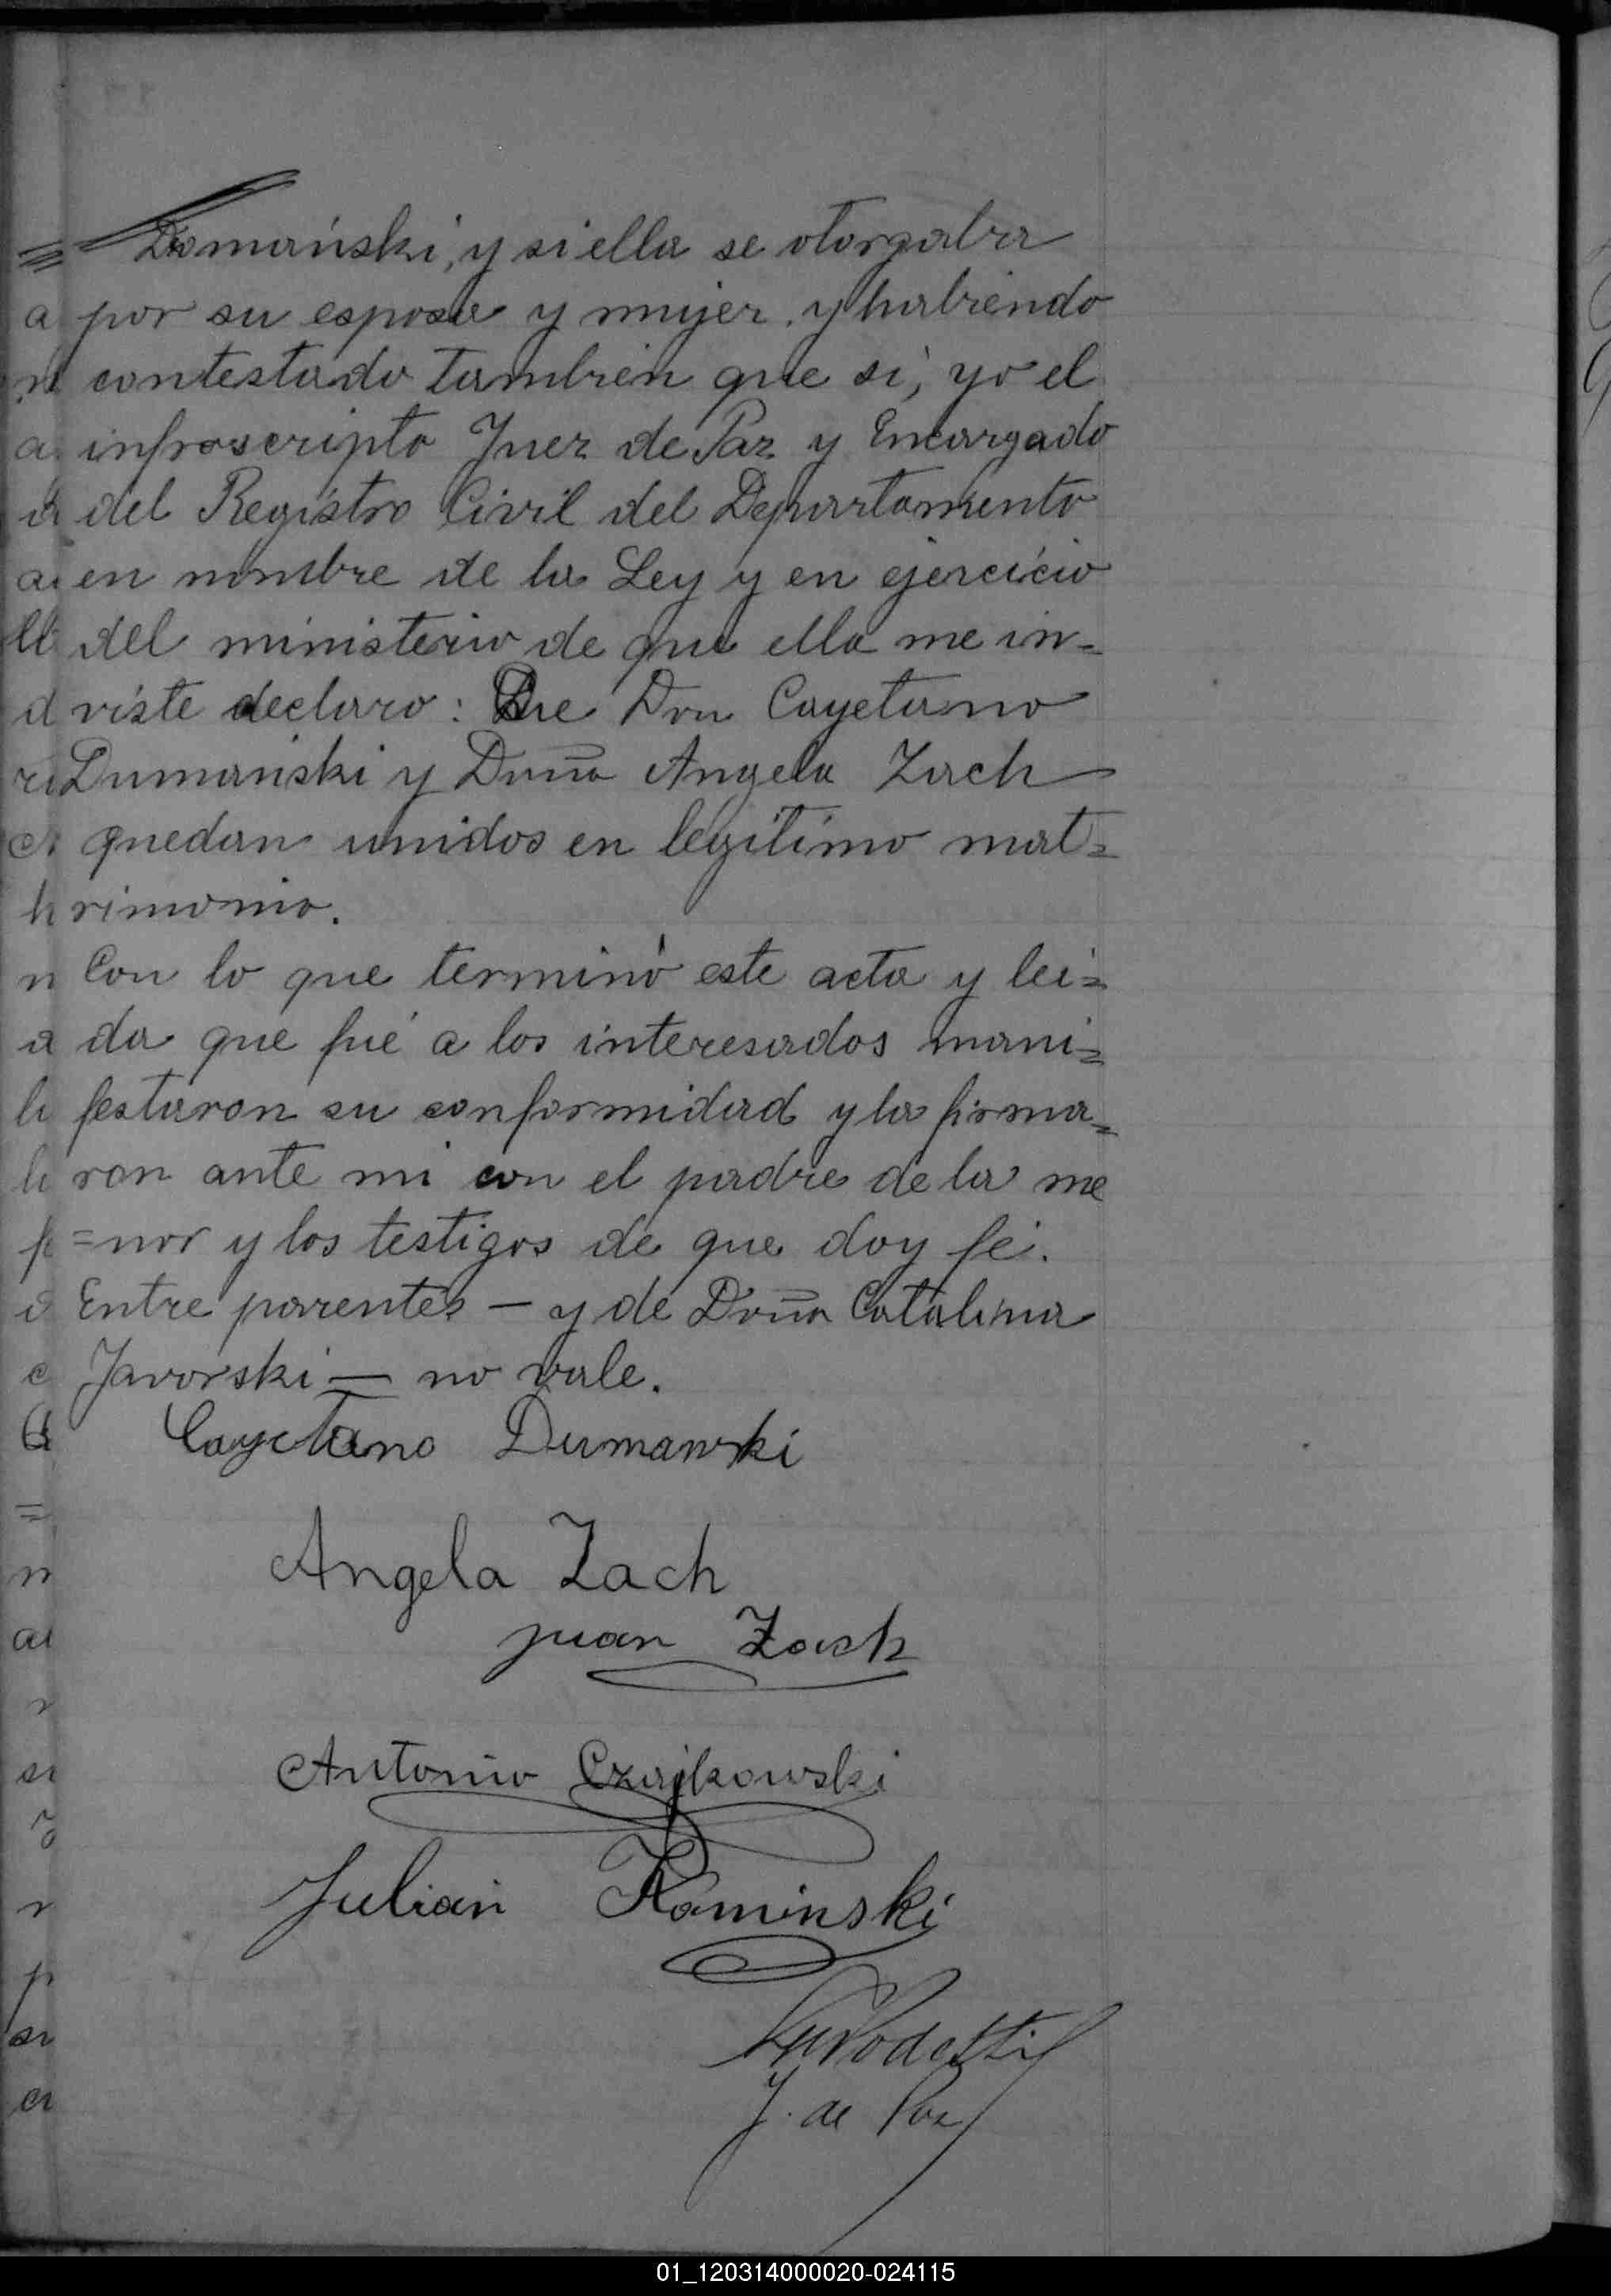 Domański, y si ella se otorgaba
por su esposa y mujer, y habiendo
contestado tambien que si, yo el
infrascripto Juez de Paz y Encargado
del Registro Civil del Departamento
en nombre de la Ley y en ejercicio
del ministerio de que ella me in-
viste declaro: Que Don Cayetano
Dumański y Doña Angela Zach
quedan unidos en legítimo mat=
rimonio.
Con lo que terminó este acta y lei=
da que fué a los interesados mani=
festaron su conformidad y la firma=
ron ante mi con el padre de la me
=nor y los testigos de que doy fé.
Entre parentes — y de Doña Catalina
Javorski — no vale.
Cayetano Dumanski
Angela Zach
Juan Zach
Antonio Czajkowski
Julian Kaminski
J. de Paz
01_120314000020-024115